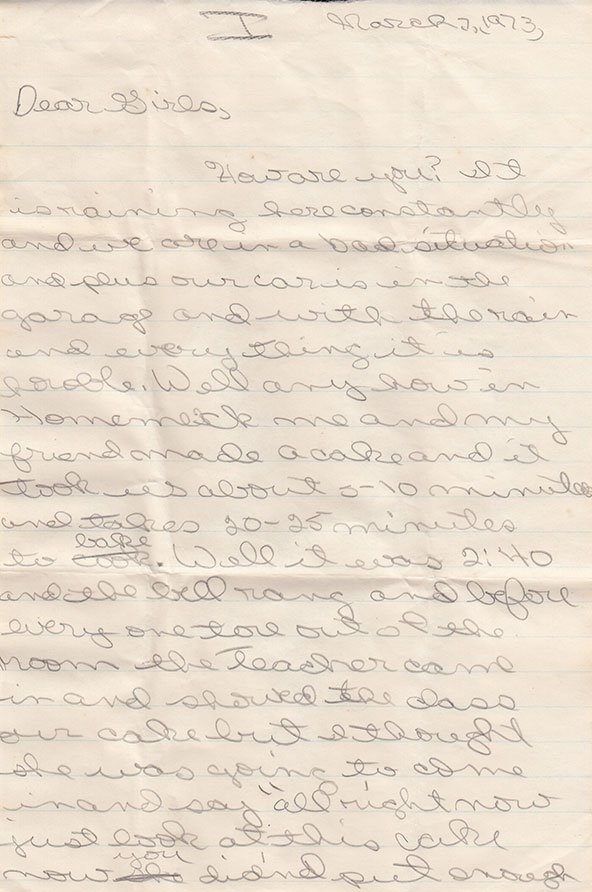 I March 7, 1973,
Dear Girls,
How are you? It
is raining here constantly
and we are in a bad situation
and plus our car is in the
garage and with the rain
and everything it is
horoble. Well any how in
Homemick me and my
friend made a cake and it
took us about 5-10 minutes
and takes 20-25 minutes
to bake. Well it was 2:40
and the bell rang and before
every one tore out of the
room the Teacher came
in and showed the class
our cake but I thought
she was going to come
in and say "all right now
just look at this cake
now you didnd put enough